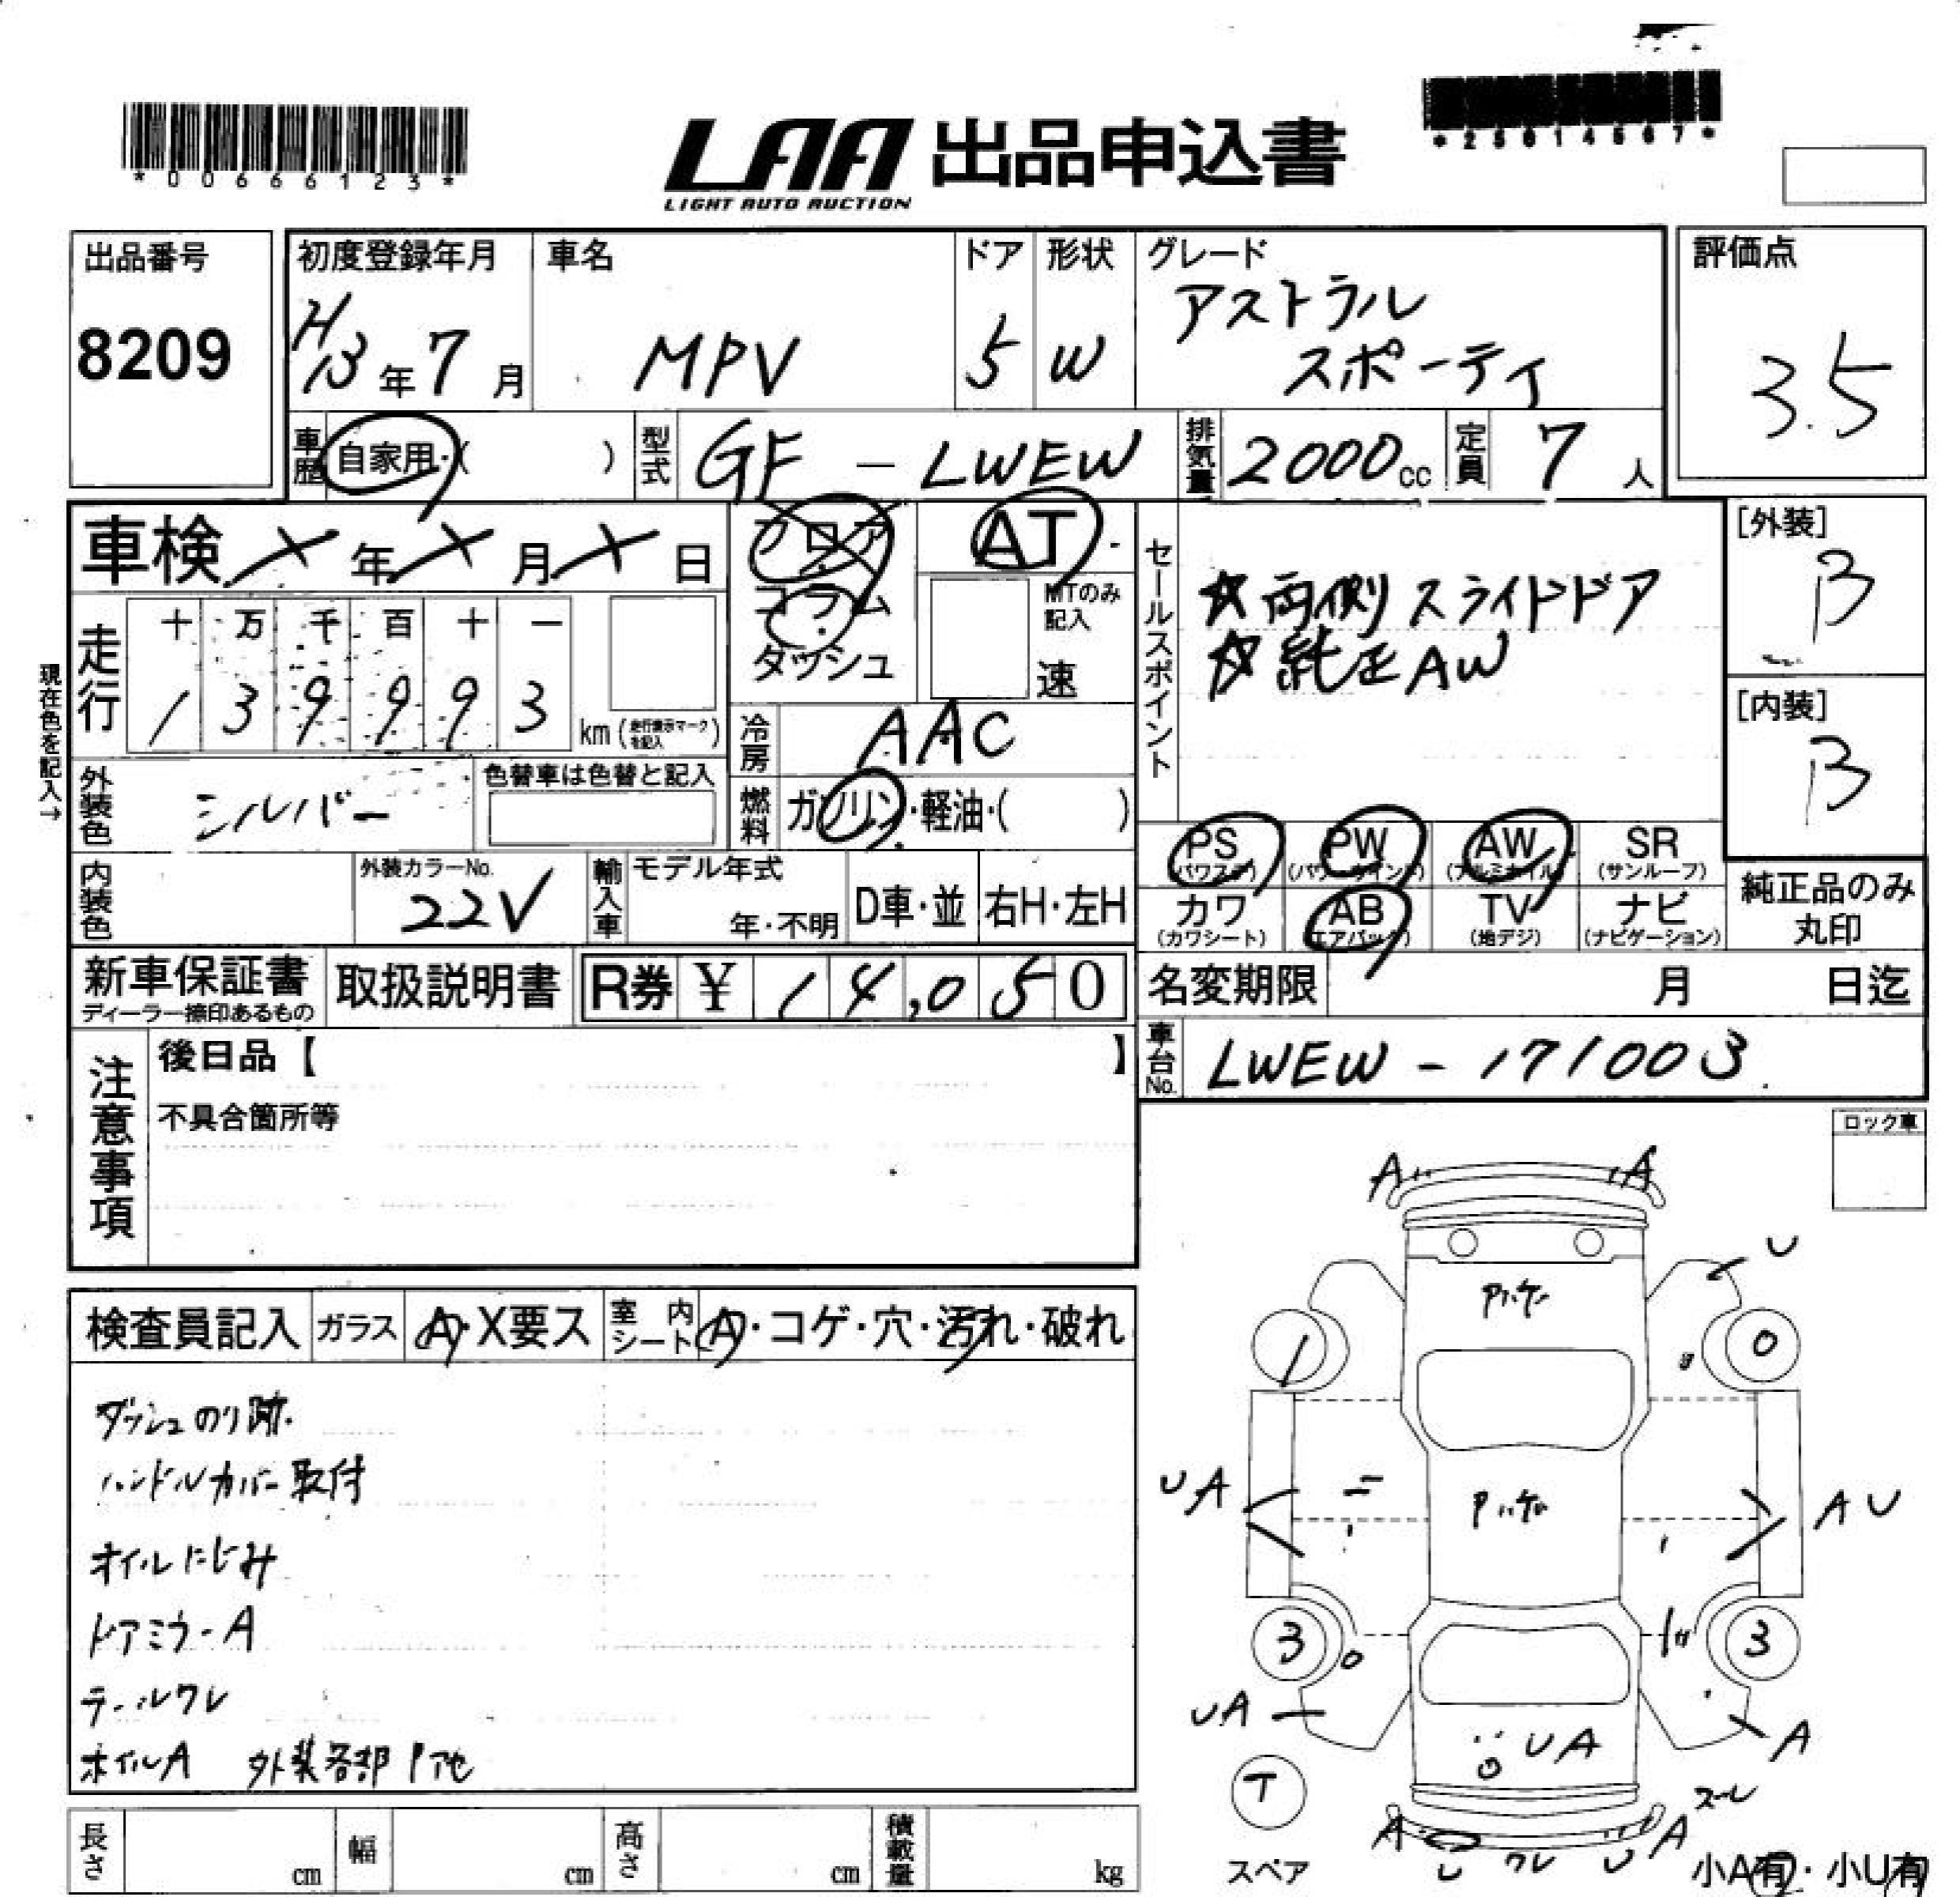 *00666123*
LAA 出品申込書
LIGHT AUTO AUCTION
*25014567*
出品番号
8209
初度登録年月
H13年7月
車名
MPV
ドア
5
形状
W
グレード
アストラル
スポーティ
評価点
3.5
車歴
自家用・( )
型式
GF - LWEW
排気量
2000cc
定員
7人
車検 X年X月X日
フロア
コラム
ダッシュ
AT
MTのみ記入
速
セールスポイント
☆両側スライドドア
☆純正AW
[外装]
B
[内装]
B
現在色を記入→
走行
十 万 千 百 十 一
1 3 9 9 9 3
km(走行表示マークを記入)
冷房
AAC
外装色
シルバー
色替車は色替と記入
燃料
ガソリン・軽油・( )
内装色
外装カラーNo.
22V
輸入車
モデル年式
年・不明
D車・並
右H・左H
PS
(パワステ)
PW
(パワーウインド)
AW
(アルミホイル)
SR
(サンルーフ)
カワ
(カワシート)
AB
(エアバック)
TV
(地デジ)
ナビ
(ナビゲーション)
純正品のみ
丸印
新車保証書
ディーラー捺印あるもの
取扱説明書
R券 ¥14,050
名変期限 月 日迄
車台No.
LWEW - 171003
注意事項
後日品【 】
不具合箇所等
ロック車
検査員記入
ガラス
A・X要ス
室内シート
A・コゲ・穴・汚れ・破れ
ダッシュのり跡
ハンドルカバー取付
オイルにじみ
ドアミラーA
テールワレ
ホイルA 外装各部
A A
U
1 0
UA
A U
3 3
UA
UA
A
T
スペア
スーレ
A
ワレ
U
A
小A有・小U有
長さ cm
幅 cm
高さ cm
積載量 kg